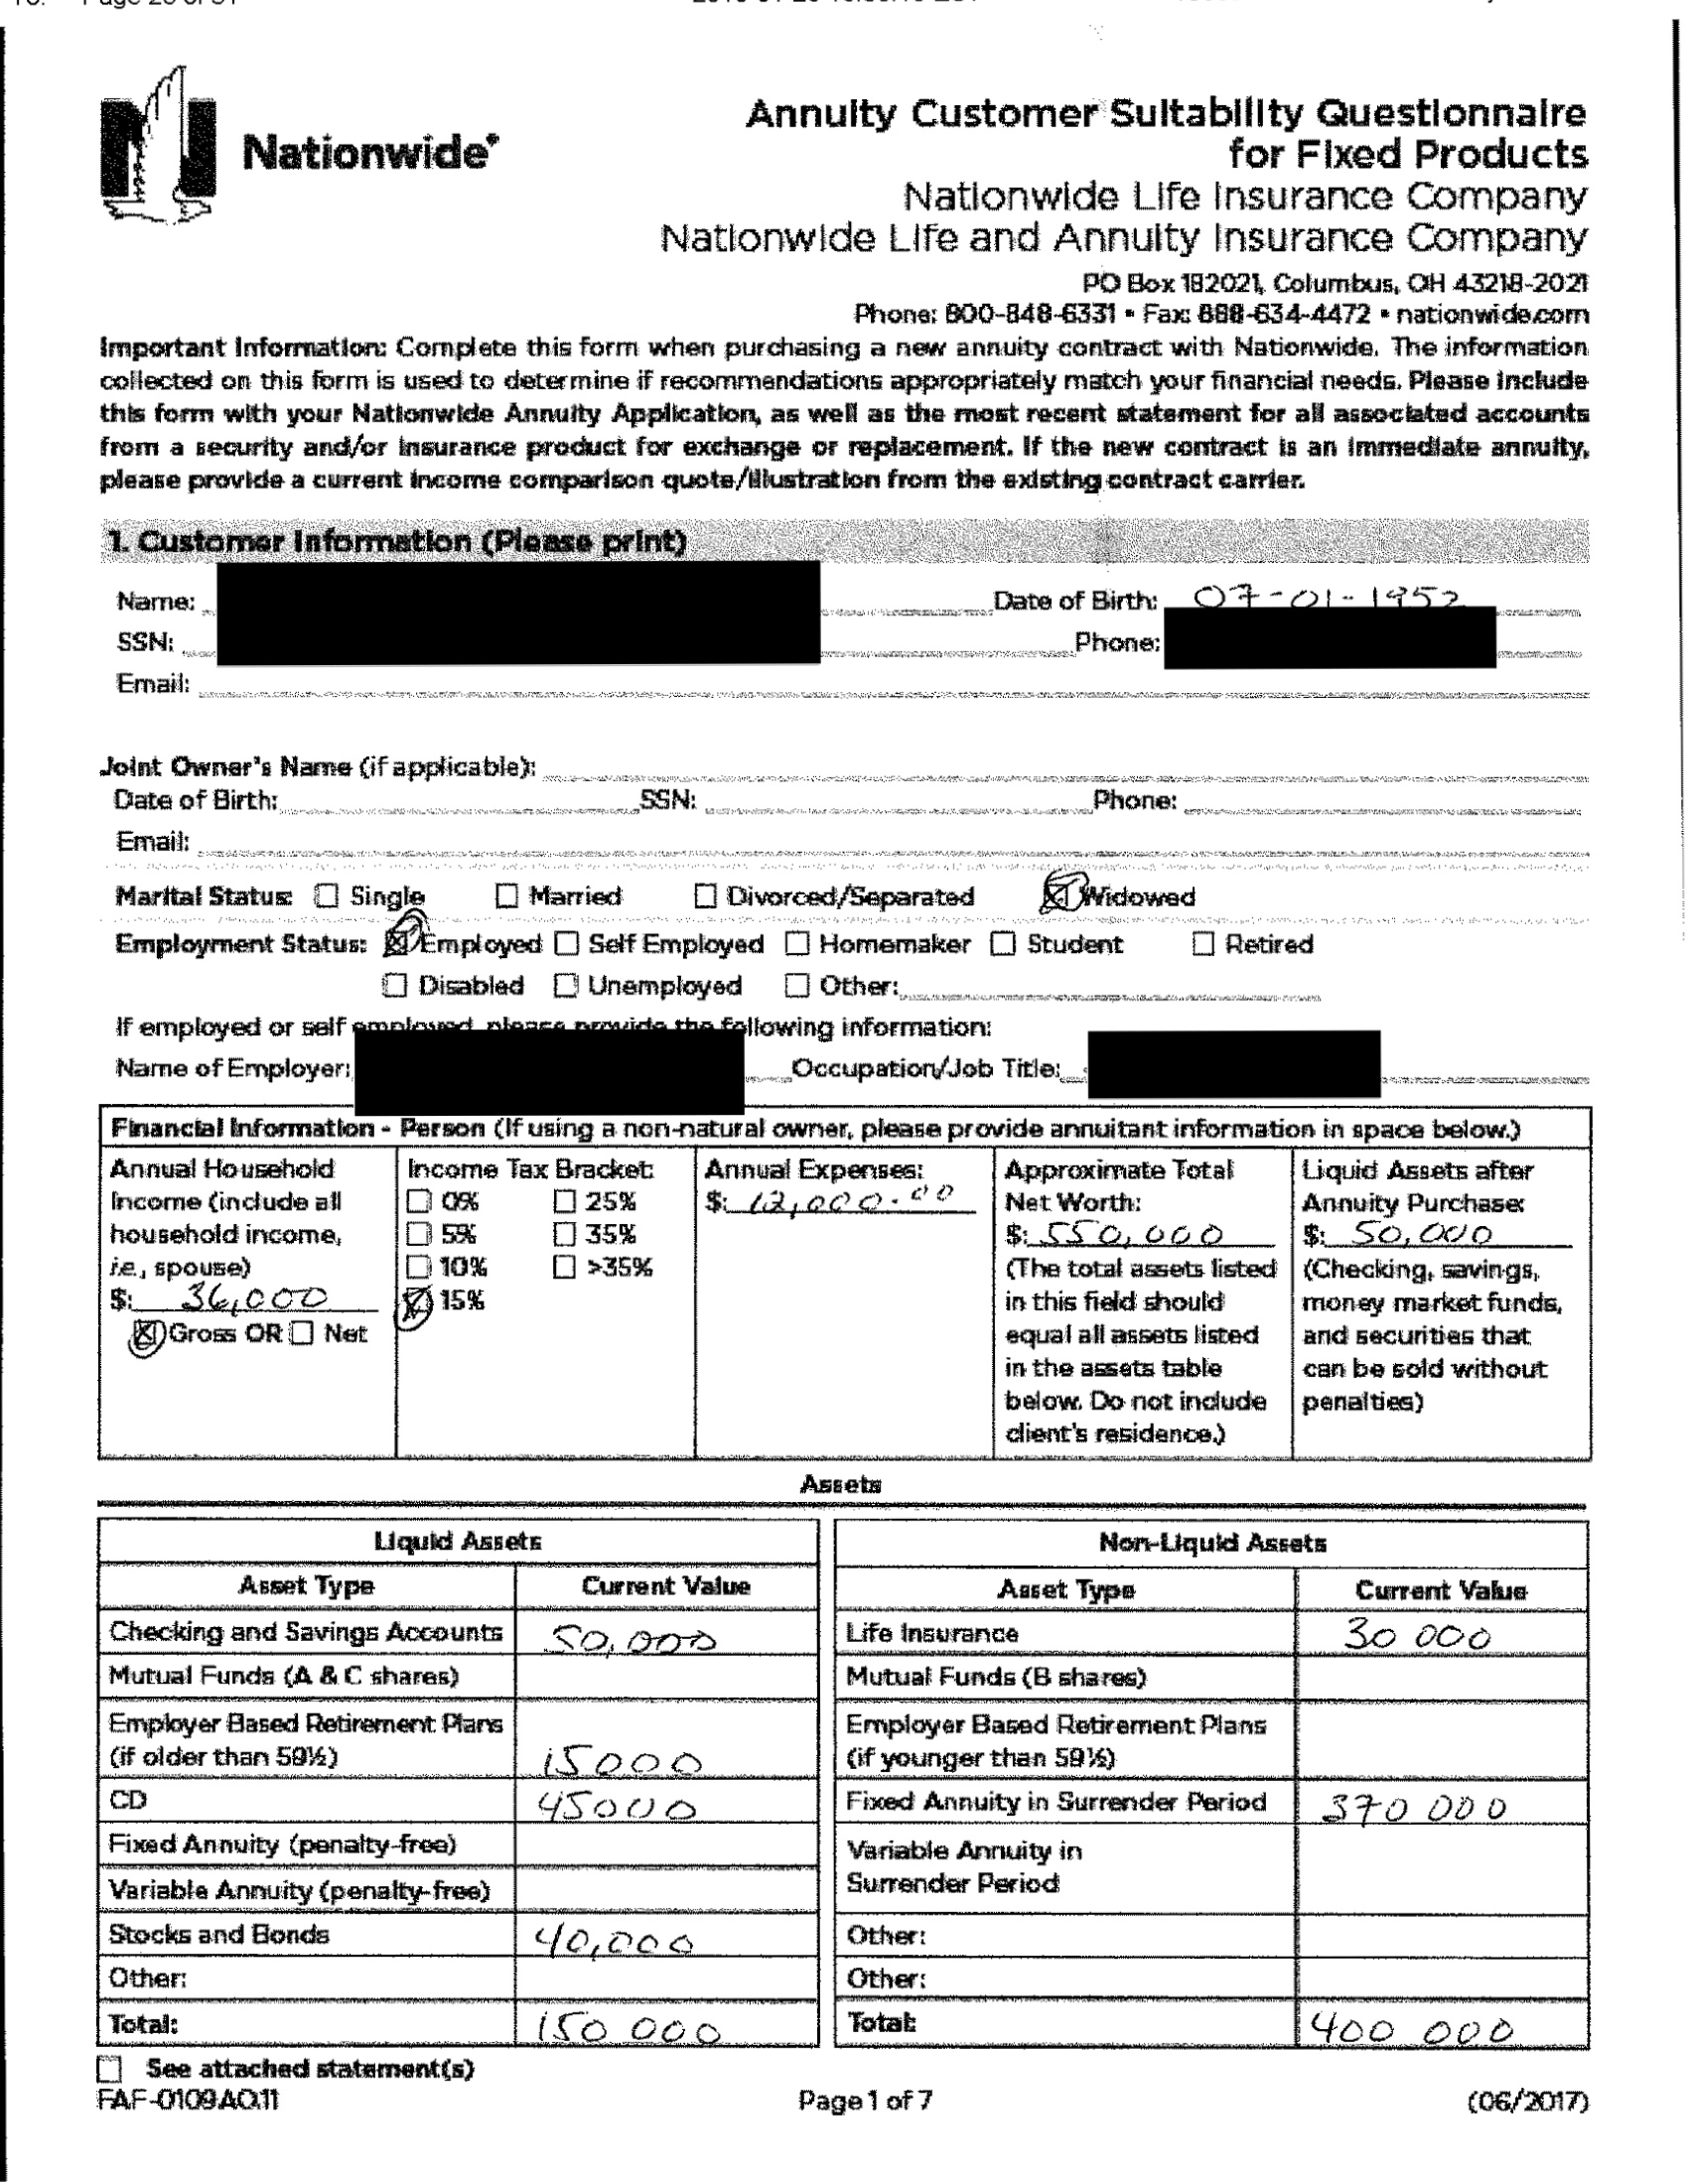 Nationwide®
Annuity Customer Suitability Questionnaire
for Fixed Products
Nationwide Life Insurance Company
Nationwide Life and Annuity Insurance Company
PO Box 182021, Columbus, OH 43218-2021
Phone: 800-848-6331 • Fax: 888-634-4472 • nationwide.com
Important Information: Complete this form when purchasing a new annuity contract with Nationwide. The information
collected on this form is used to determine if recommendations appropriately match your financial needs. Please include
this form with your Nationwide Annuity Application, as well as the most recent statement for all associated accounts
from a security and/or insurance product for exchange or replacement. If the new contract is an immediate annuity,
please provide a current income comparison quote/illustration from the existing contract carrier.
1. Customer Information (Please print)
Name: Date of Birth: 07-01-1952
SSN: Phone:
Email:
Joint Owner's Name (if applicable):
Date of Birth: SSN: Phone:
Email:
Marital Status: Single Married Divorced/Separated Widowed
Employment Status: Employed Self Employed Homemaker Student Retired
Disabled Unemployed Other:
If employed or self employed, please provide the following information:
Name of Employer: Occupation/Job Title:
Financial Information - Person (If using a non-natural owner, please provide annuitant information in space below.)
Annual Household
Income (include all
household income,
i.e., spouse)
$: 36,000
Gross OR Net
Income Tax Bracket:
0% 25%
5% 35%
10% >35%
15%
Annual Expenses:
$: 12,000.00
Approximate Total
Net Worth:
$: 550,000
(The total assets listed
in this field should
equal all assets listed
in the assets table
below. Do not include
client's residence.)
Liquid Assets after
Annuity Purchase:
$: 50,000
(Checking, savings,
money market funds,
and securities that
can be sold without
penalties)
Assets
Liquid Assets
Asset Type Current Value
Checking and Savings Accounts 50,000
Mutual Funds (A & C shares)
Employer Based Retirement Plans
(if older than 59½) 15000
CD 45000
Fixed Annuity (penalty-free)
Variable Annuity (penalty-free)
Stocks and Bonds 40,000
Other:
Total: 150 000
Non-Liquid Assets
Asset Type Current Value
Life Insurance 30 000
Mutual Funds (B shares)
Employer Based Retirement Plans
(if younger than 59½)
Fixed Annuity in Surrender Period 370 000
Variable Annuity in
Surrender Period
Other:
Other:
Total: 400 000
See attached statement(s)
FAF-0109AO.11 Page 1 of 7 (06/2017)